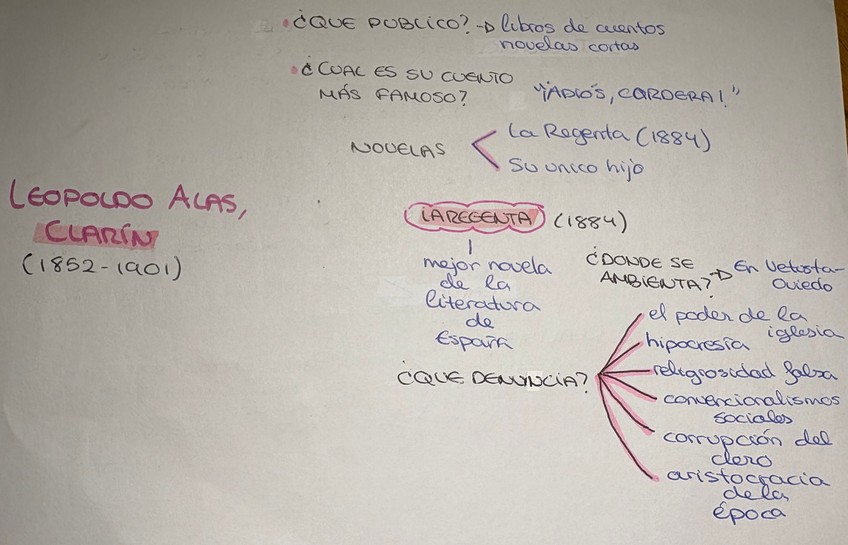 • ¿QUE PUBLICO? → libros de cuentos
novelas cortas
• ¿CUAL ES SU CUENTO
MÁS FAMOSO? "¡ADIÓS, CORDERA!"
NOVELAS
La Regenta (1884)
Su unico hijo
LEOPOLDO ALAS,
CLARÍN
(1852-1901)
LA REGENTA (1884)
mejor novela
de la
literatura
de
España
¿DONDE SE
AMBIENTA? → En Vetusta-
Oviedo
¿QUE DENUNCIA?
el poder de la
iglesia
hipocresía
religiosidad falsa
convencionalismos
sociales
corrupción del
clero
aristocracia
de la
época